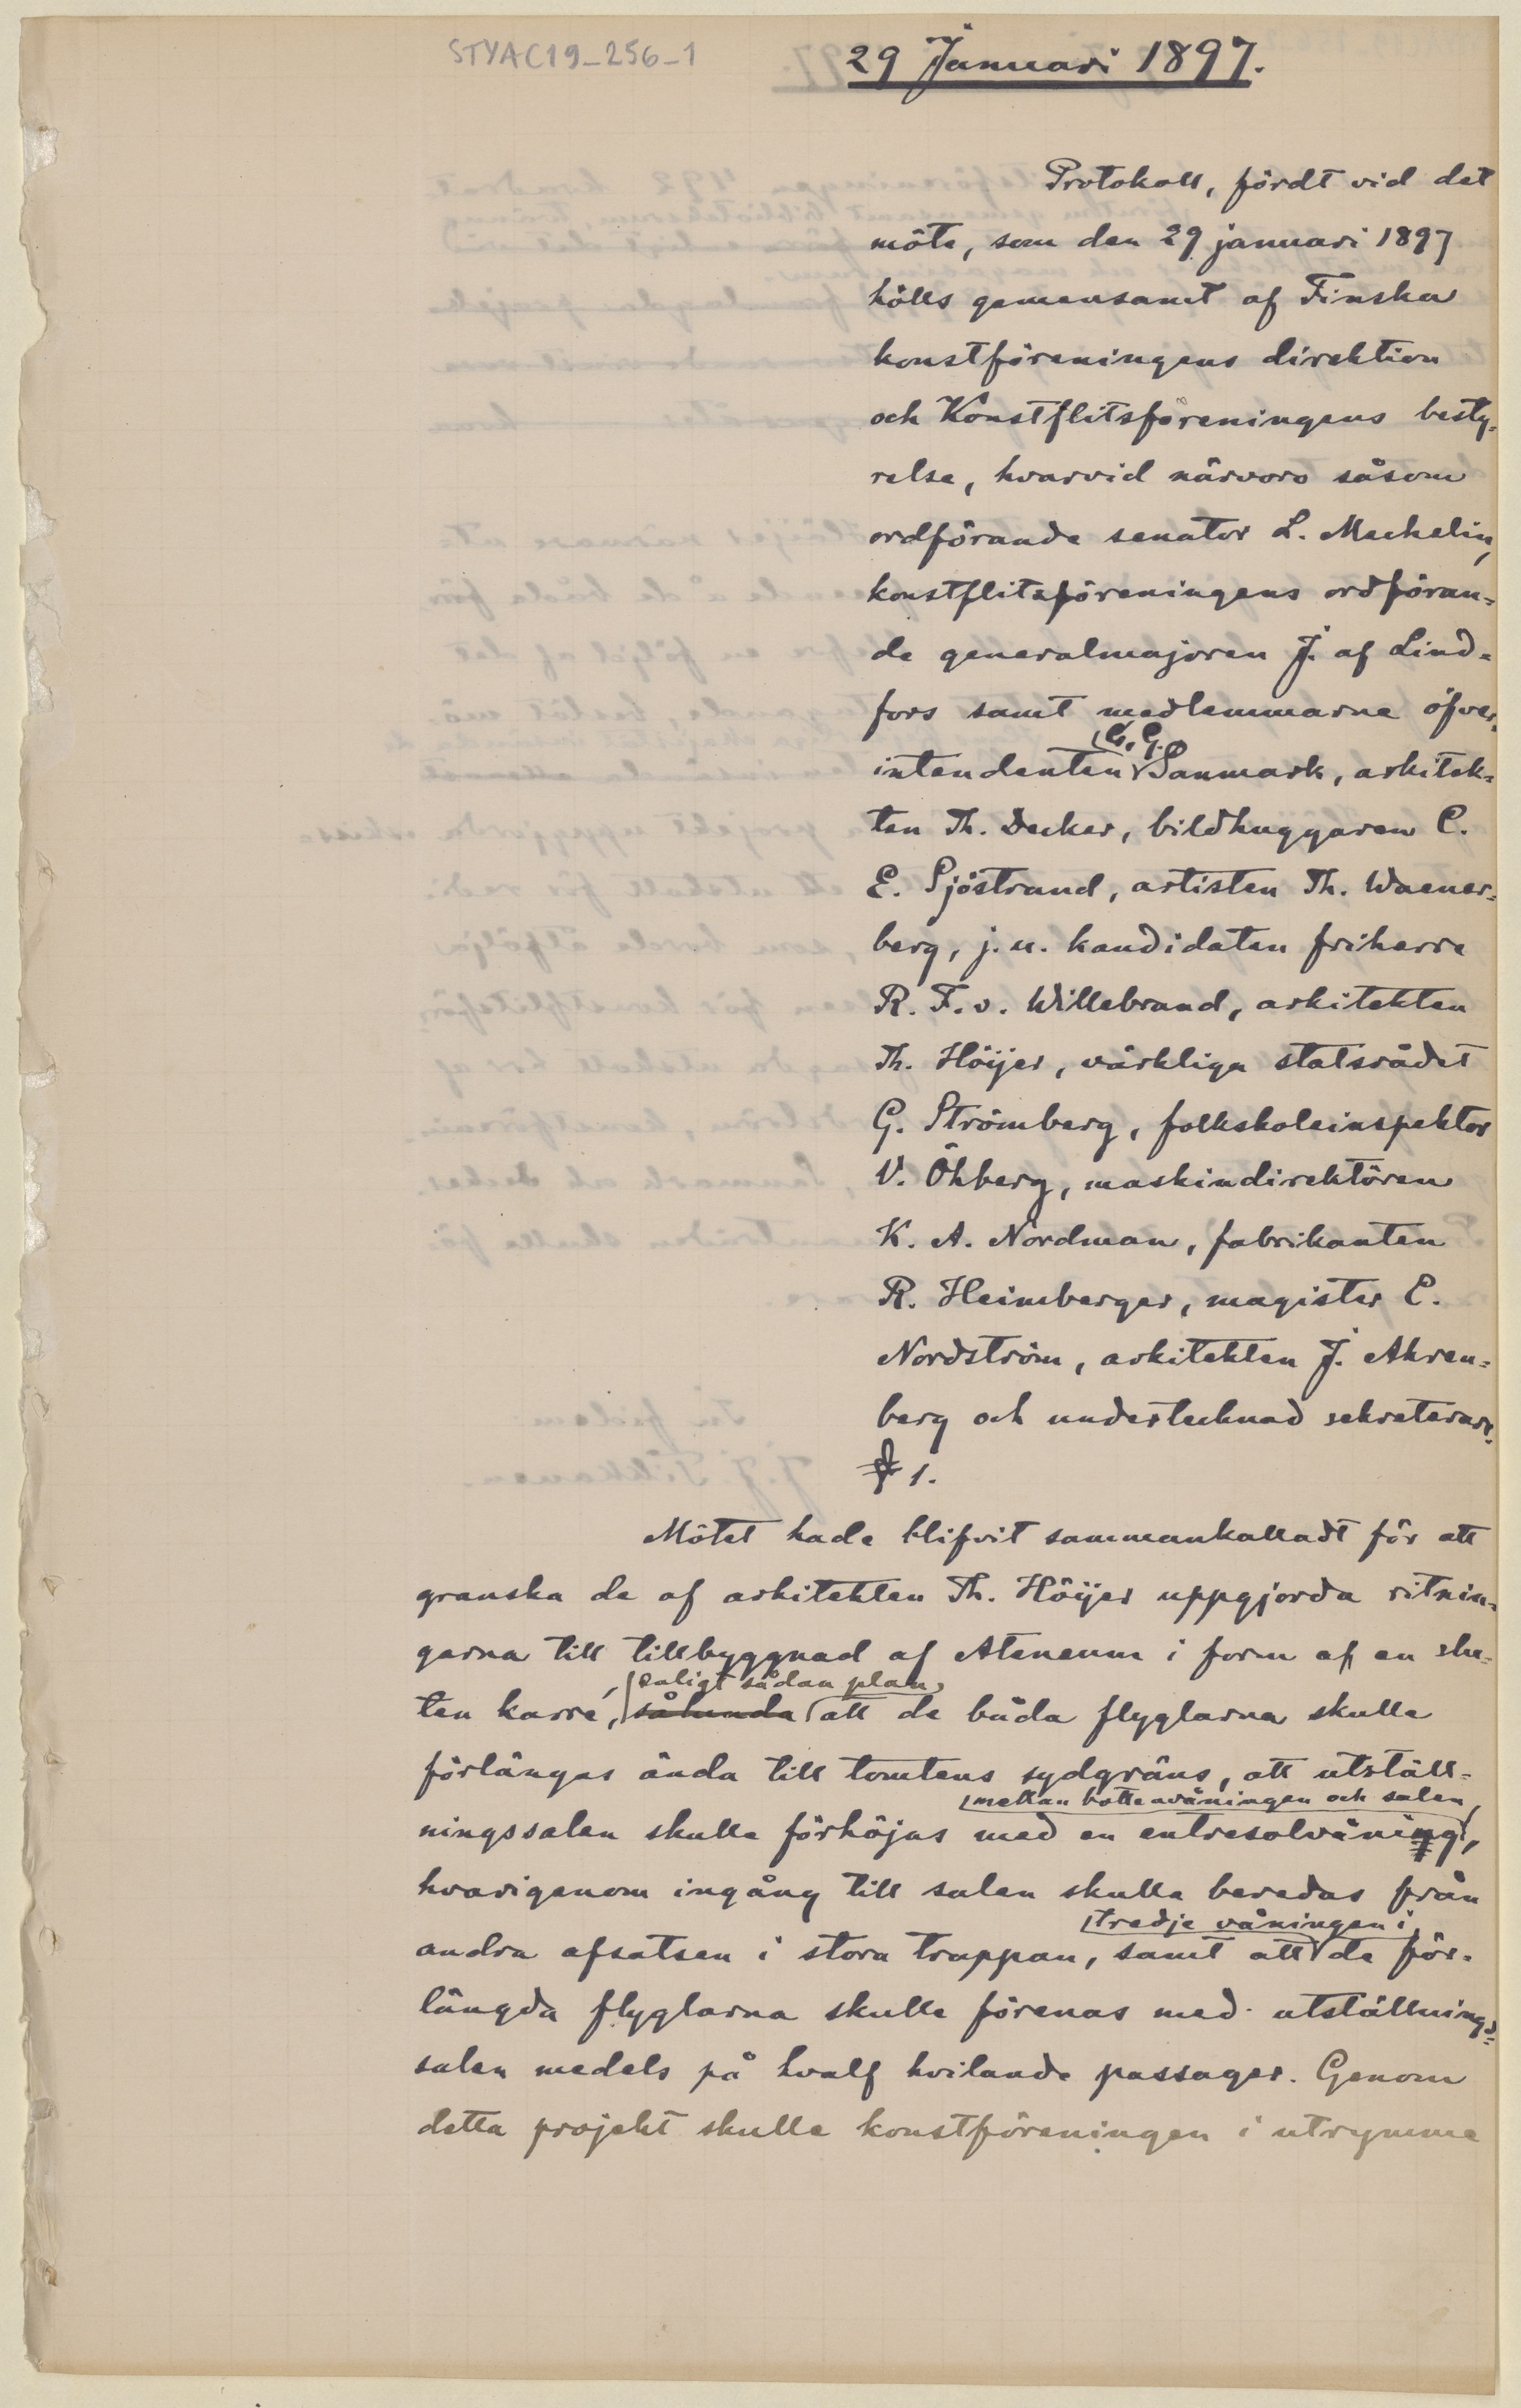 STYAC19_256_1
29 Januari 1897.
Protokoll, fördt vid det
möte, som den 29 januari 1897
hölls gemensamt af Finska
konstföreningens direktion
och Konstflitsföreningens besty=
relse, hvarvid närvoro såsom
ordförande senator L. Mechelin,
konstflitsföreningens ordföran=
de generalmajoren J. af Lind=
fors samt medlemmarne öfver=
G. G.
intendenten Sanmark, arkitek=
ten Th. Decker, bildhuggaren C.
E. Sjöstrand, artisten Th. Waener=
berg, j. u. kandidaten friherre
R. F. v. Willebrand, arkitekten
Th. Höijer, värkliga statsrådet
G. Strömberg, folkskoleinspektor
V. Öhberg, maskindirektören
K. A. Nordman, fabrikanten
R. Heimberger, magister E.
Nordström, arkitekten J. Ahren=
berg och undertecknad sekreterare.
§ 1.
Mötet hade blifvit sammankalladt för att
granska de af arkitekten Th. Höijer uppgjorda ritnin=
garna till tillbyggnad af Ateneum i form af en slu=
enligt sådan plan,
ten karré, sålunda att de båda flyglarna skulle
förlängas ända till tomtens sydgräns, att utställ=
mellan bottenvåningen och salen
ningssalen skulle förhöjas med en entresolvåning,
hvarigenom ingång till salen skulle beredas från
tredje våningen i
andra afsatsen i stora trappan, samt att de för=
längda flyglarna skulle förenas med utställnings=
salen medels på hvalf hvilande passager. Genom
detta projekt skulle konstföreningen i utrymme